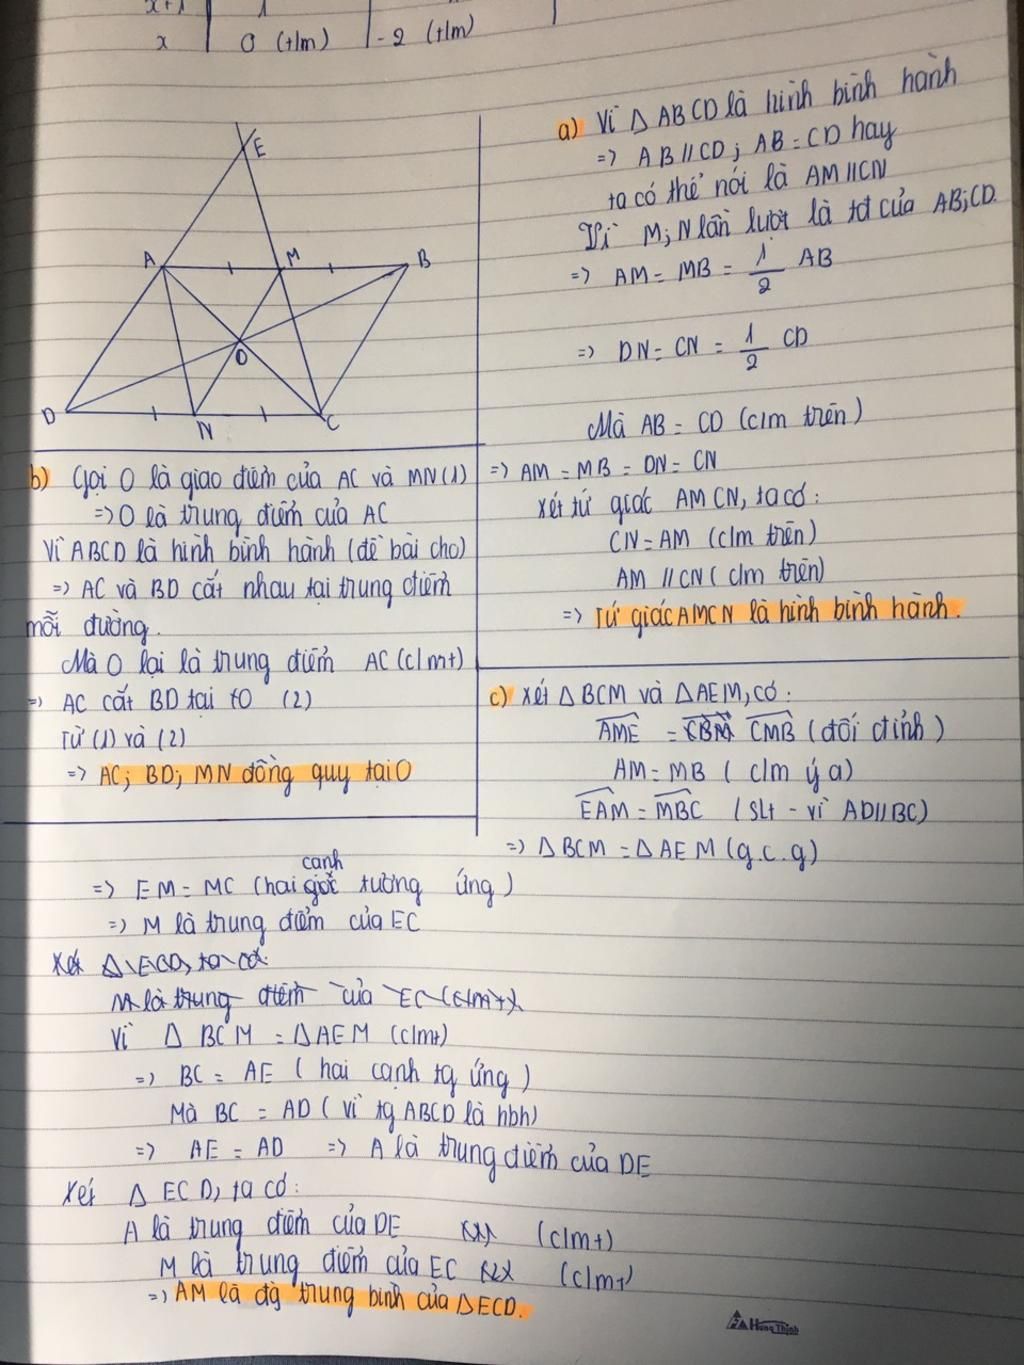 x+1 | 1 |
x | 0 (t/m) | -2 (t/m)
E
A M B
O
D N C
a) Vì Δ ABCD là hình bình hành
=> AB // CD ; AB = CD hay
ta có thể nói là AM // CN
Vì M; N lần lượt là tđ của AB; CD.
=> AM = MB = 1/2 AB
=> DN = CN = 1/2 CD
Mà AB = CD (c/m trên)
=> AM = MB = DN = CN
Xét tứ giác AMCN, ta có:
CN = AM (c/m trên)
AM // CN (c/m trên)
=> Tứ giác AMCN là hình bình hành.
b) Gọi O là giao điểm của AC và MN (1)
=> O là trung điểm của AC
Vì ABCD là hình bình hành (đề bài cho)
=> AC và BD cắt nhau tại trung điểm
mỗi đường.
Mà O lại là trung điểm AC (c/mt)
=> AC cắt BD tại tO (2)
Từ (1) và (2)
=> AC; BD; MN đồng quy tại O
c) Xét Δ BCM và Δ AEM, có:
AME = CBM CMB (đối đỉnh)
AM = MB (c/m ý a)
EAM = MBC (SLt - vì AD // BC)
=> Δ BCM = Δ AEM (g.c.g)
cạnh
=> EM = MC (hai góc tương ứng)
=> M là trung điểm của EC
Xét Δ ECD, ta có:
M là trung điểm của EC (c/mt)
Vì Δ BCM = Δ AEM (c/mt)
=> BC = AE (hai cạnh tg ứng)
Mà BC = AD (vì tg ABCD là hbh)
=> AE = AD => A là trung điểm của DE
Xét Δ ECD, ta có:
A là trung điểm của DE (c/mt)
M là trung điểm của EC (c/mt)
=> AM là đg trung bình của Δ ECD.
Hưng Thịnh